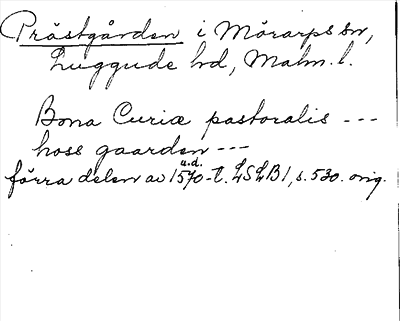 Prästgården i Mörarps sn,
Luggude hd, Malm. l.
Bona Curiæ pastoralis ---
hoss gaarden ---
u.d.
förra delen av 1570-t. LSLB1, s. 530. orig.